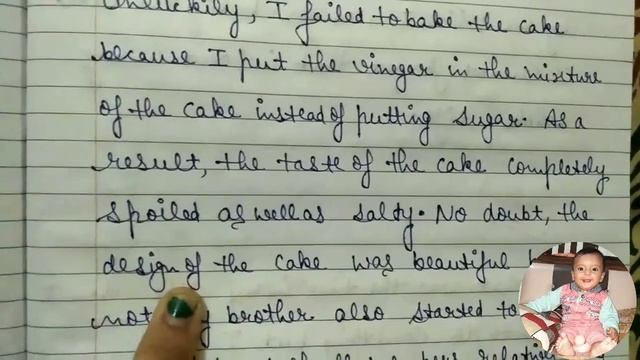 Unluckily, I failed to bake the cake
because I put the vinegar in the mixture
of the cake instead of putting sugar. As a
result, the taste of the cake completely
spoiled as well as salty. No doubt, the
design of the cake was beautiful
brother also started to